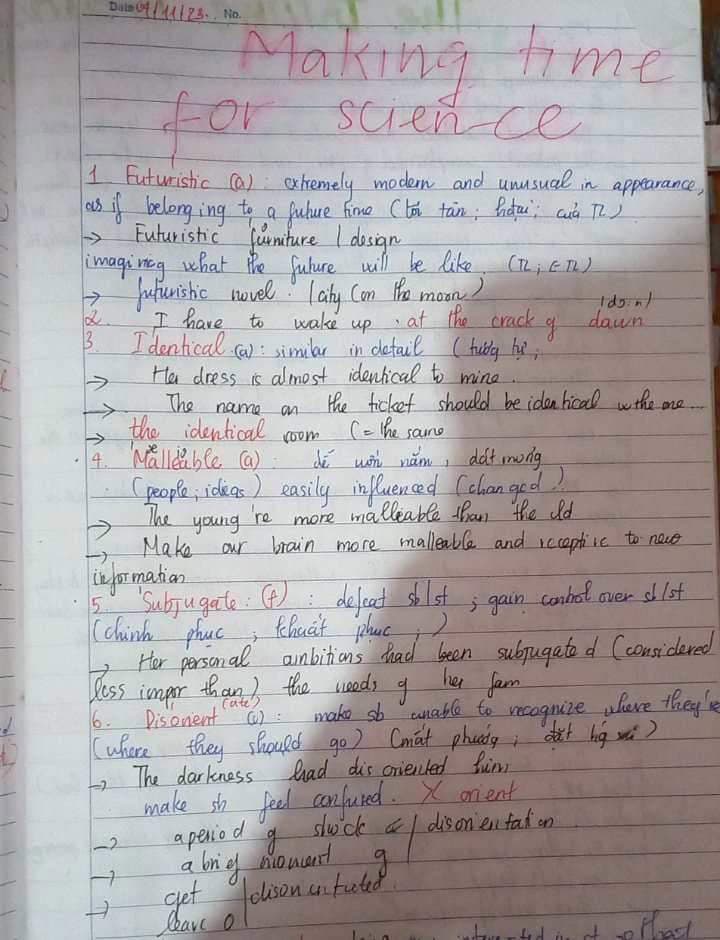 Date 04/11/23. No.
Making time
for science
1 Futuristic (a): extremely modern and unusual in appearance,
as if belonging to a future time (tối tân; hđại; của TL)
→ Futuristic furniture / design
imagining what the future will be like. (TL; ∈ TL)
→ futuristic novel. / city (on the moon)
2. I have to wake up at the crack of dawn /dɔ:n/
3. Identical (a): similar in detail (tương tự;
→ Her dress is almost identical to mine.
→ The name on the ticket should be identical w the one
→ the identical room (= the same
4. Malleable (a): dễ uốn nắn, dát mỏng
(people; ideas) easily influenced (changed)
→ The young're more malleable than the old
→ Make our brain more malleable and receptive to new
information
5 Subjugate: : defeat sb/st ; gain control over sb/st
(chinh phục ; khuất phục ; )
→ Her personal ambitions had been subjugated (considered
less impor than) the needs of her fam
6. Disorient (ate) (v): make sb unable to recognize where they're
(where they should go) (mất phương ;
→ The darkness had disoriented him
make sb feel confused. X orient
→ a period of shock / disorientation
→ a brief moment of
→ get / disorientated.
leave o